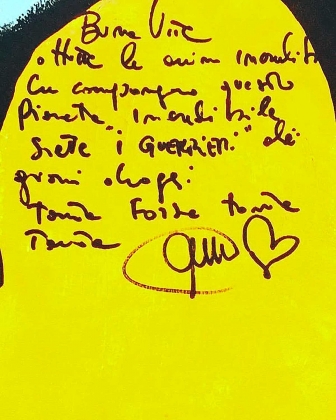 Buona Vita
a tutte le anime incredibili
che compongono questo
Pianeta incredibile
siete "i GUERRIERI" dei
giorni d'oggi
tanta Forza tanta
Tanta